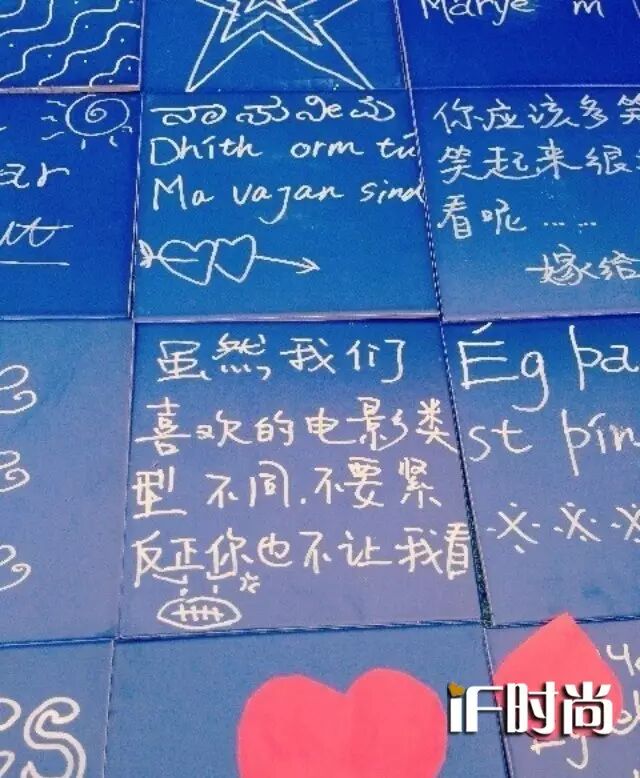 Dhíth orm tú
Ma vajan sind
你应该多笑
笑起来很
看呢……
嫁给
虽然，我们
喜欢的电影类
型不同.不要紧
反正你也不让我看
Ég þa
st þín
ES
iF时尚